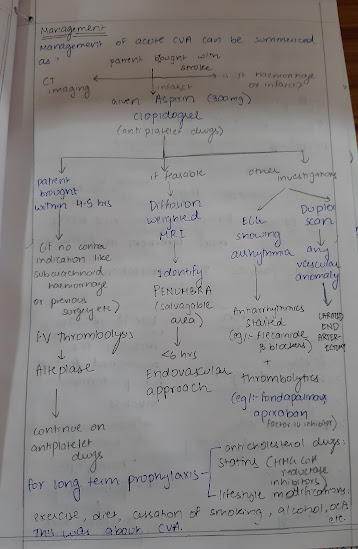 Management
Management of acute CVA can be summerised
as:
patient bought with
stroke
CT
imaging
(is it haemorrhage
or infarct)
infarct
given Asprin (300mg)
Clopidogrel
(anti platelet drugs)
patient
brought
within 4-5 hrs
(if no contra
indication like
subarachnoid
haemorrhage
or previous
surgery etc)
I.V thrombolysis
Alteplase
continue on
antiplatelet
drugs
if feasable
Diffusion
weighted
MRI
Identify
PENUMBRA
(salvagable
area)
<6 hrs
Endovascular
approach
other investigations
ECG
showing
arrhythmia
Antiarrhythmics
started
(eg:- flecainide
β blockers)
+
thrombolytics
(eg:- fondaparinux
apixaban
factor 10 inhibitor)
Duplex
scan
any
vascular
anomaly
CAROTID
END
ARTER-
ECTOMY
for long term prophylaxis
anticholesterol drugs:
statins (HMG CoA
reductase
inhibitors)
lifestyle modifications:
exercise, diet, cessation of smoking, alcohol, OCPs
etc.
This was about CVA.